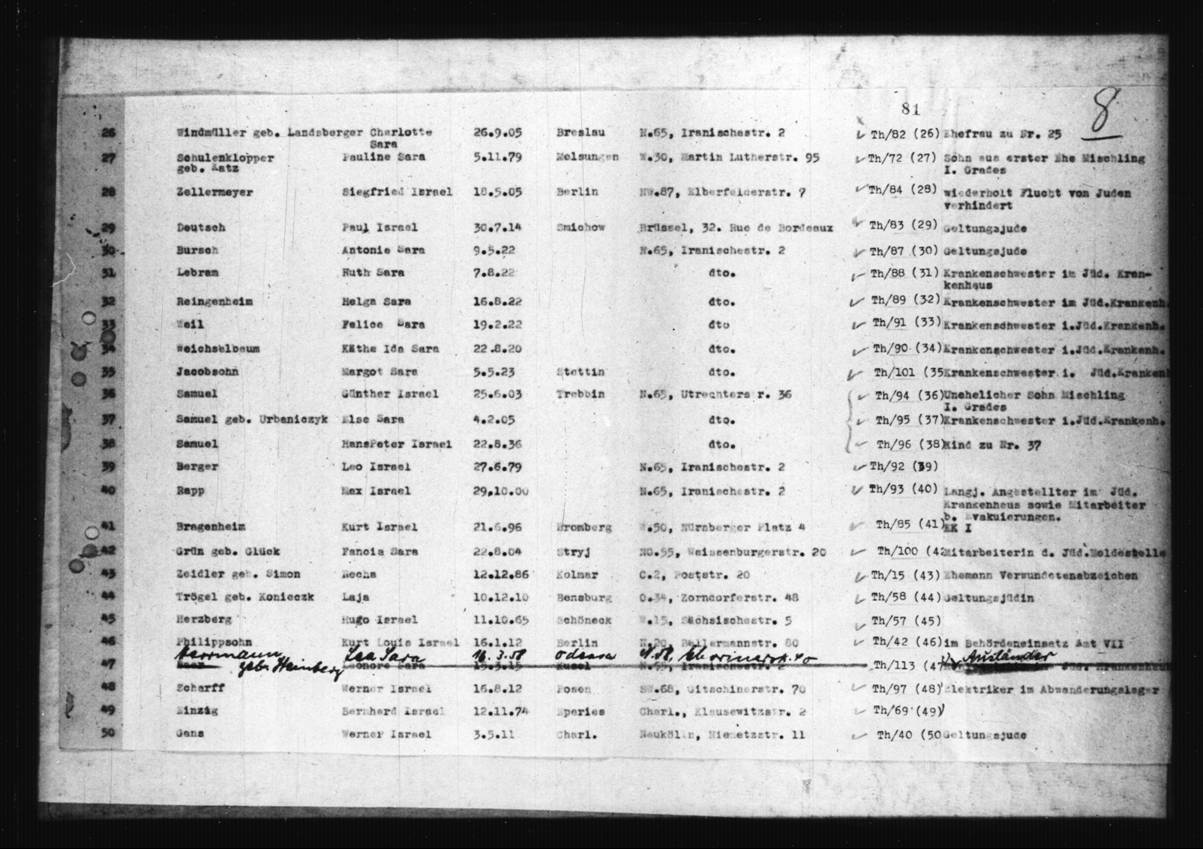 81
8
26 Windmüller geb. Landsberger Charlotte 26.9.05 Breslau N.65, Iranischestr. 2 Th/82 (26) Ehefrau zu Nr. 25
Sara
27 Schulenklopper Pauline Sara 5.11.79 Melsungen W.30, Martin Lutherstr. 95 Th/72 (27) Sohn aus erster Ehe Mischling
geb. Katz I. Grades
28 Zellermeyer Siegfried Israel 18.5.05 Berlin NW.87, Elberfelderstr. 7 Th/84 (28) wiederholt Flucht von Juden
verhindert
29 Deutsch Paul Israel 30.7.14 Smichow Brüssel, 32. Rue de Bordeaux Th/83 (29) Geltungsjude
30 Bursch Antonie Sara 9.5.22 N.65, Iranischestr. 2 Th/87 (30) Geltungsjude
31 Lebram Ruth Sara 7.8.22 dto. Th/88 (31) Krankenschwester im Jüd. Kran-
kenhaus
32 Reingenheim Helga Sara 16.8.22 dto. Th/89 (32) Krankenschwester im Jüd.Krankenh.
33 Weil Felice Sara 19.2.22 dto. Th/91 (33) Krankenschwester i.Jüd.Krankenh.
34 Weichselbaum Käthe Ida Sara 22.8.20 dto. Th/90 (34) Krankenschwester i.Jüd.Krankenh.
35 Jacobsohn Margot Sara 5.5.23 Stettin dto. Th/101 (35 Krankenschwester i. Jüd.Kranken
36 Samuel Günther Israel 25.6.03 Trebbin N.65, Utrechterstr. 36 Th/94 (36) Unehelicher Sohn Mischling
I. Grades
37 Samuel geb. Urbaniczyk Else Sara 4.2.05 dto. Th/95 (37) Krankenschwester i.Jüd.Krankenh.
38 Samuel HansPeter Israel 22.8.36 dto. Th/96 (38) Kind zu Nr. 37
39 Berger Leo Israel 27.6.79 N.65, Iranischestr. 2 Th/92 (39)
40 Rapp Max Israel 29.10.00 N.65, Iranischestr. 2 Th/93 (40) Langj. Angestellter im Jüd.
Krankenhaus sowie Mitarbeiter
b. Evakuierungen.
41 Bragenheim Kurt Israel 21.6.96 Bromberg W.50, Nürnberger Platz 4 Th/85 (41) EK I
42 Grün geb. Glück Fancia Sara 22.8.04 Stryj NO.55, Weissenburgerstr. 20 Th/100 (42 Mitarbeiterin d. Jüd.Meldestelle
43 Zeidler geb. Simon Recha 12.12.86 Kolmar C.2, Poststr. 20 Th/15 (43) Ehemann Verwundetenabzeichen
44 Trögel geb. Konieczk Laja 10.12.10 Bensburg O.34, Zorndorferstr. 48 Th/58 (44) Geltungsjüdin
45 Herzberg Hugo Israel 11.10.65 Schöneck W.15, Sächsischestr. 5 Th/57 (45)
46 Philippsohn Kurt Louis Israel 16.1.12 Berlin N.20, Bellermannstr. 80 Th/42 (46) im Behördeneinsatz Amt VII
Herrmann Sara Ausländer
geb. Heimberg
47 Sara 15.3.15 Kusel N.65, Iranischestr. 2 Th/113 (47 Jüd. Kranken
48 Scharff Werner Israel 16.8.12 Posen SW.68, Gitschinerstr. 70 Th/97 (48) Elektriker im Abwanderungslager
49 Einzig Bernhard Israel 12.11.74 Eperies Charl., Klausewitzstr. 2 Th/69 (49)
50 Gans Werner Israel 3.5.11 Charl. Neukölln, Niemetzstr. 11 Th/40 (50 Geltungsjude